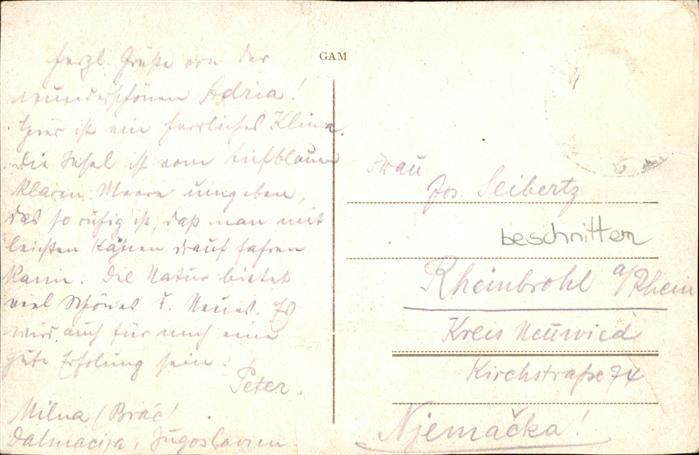 GAM
Herzl. Grüße von der
wunderschönen Adria!
Hier ist ein herrliches Klima.
Die Insel ist vom tiefblauen
klaren Meere umgeben,
das so ruhig ist, daß man mit
leichten Kähnen drauf fahren
kann. Die Natur bietet
viel Schönes u. Neues. Es
wird auch für mich eine
gute Erholung sein!
Peter.
Milna (Brač)
Dalmacija, Jugoslavien.
Frau
Jos. Seibertz
beschnitten
Rheinbrohl a/Rhein
Kreis Neuwied
Kirchstraße 74
Njemačka!